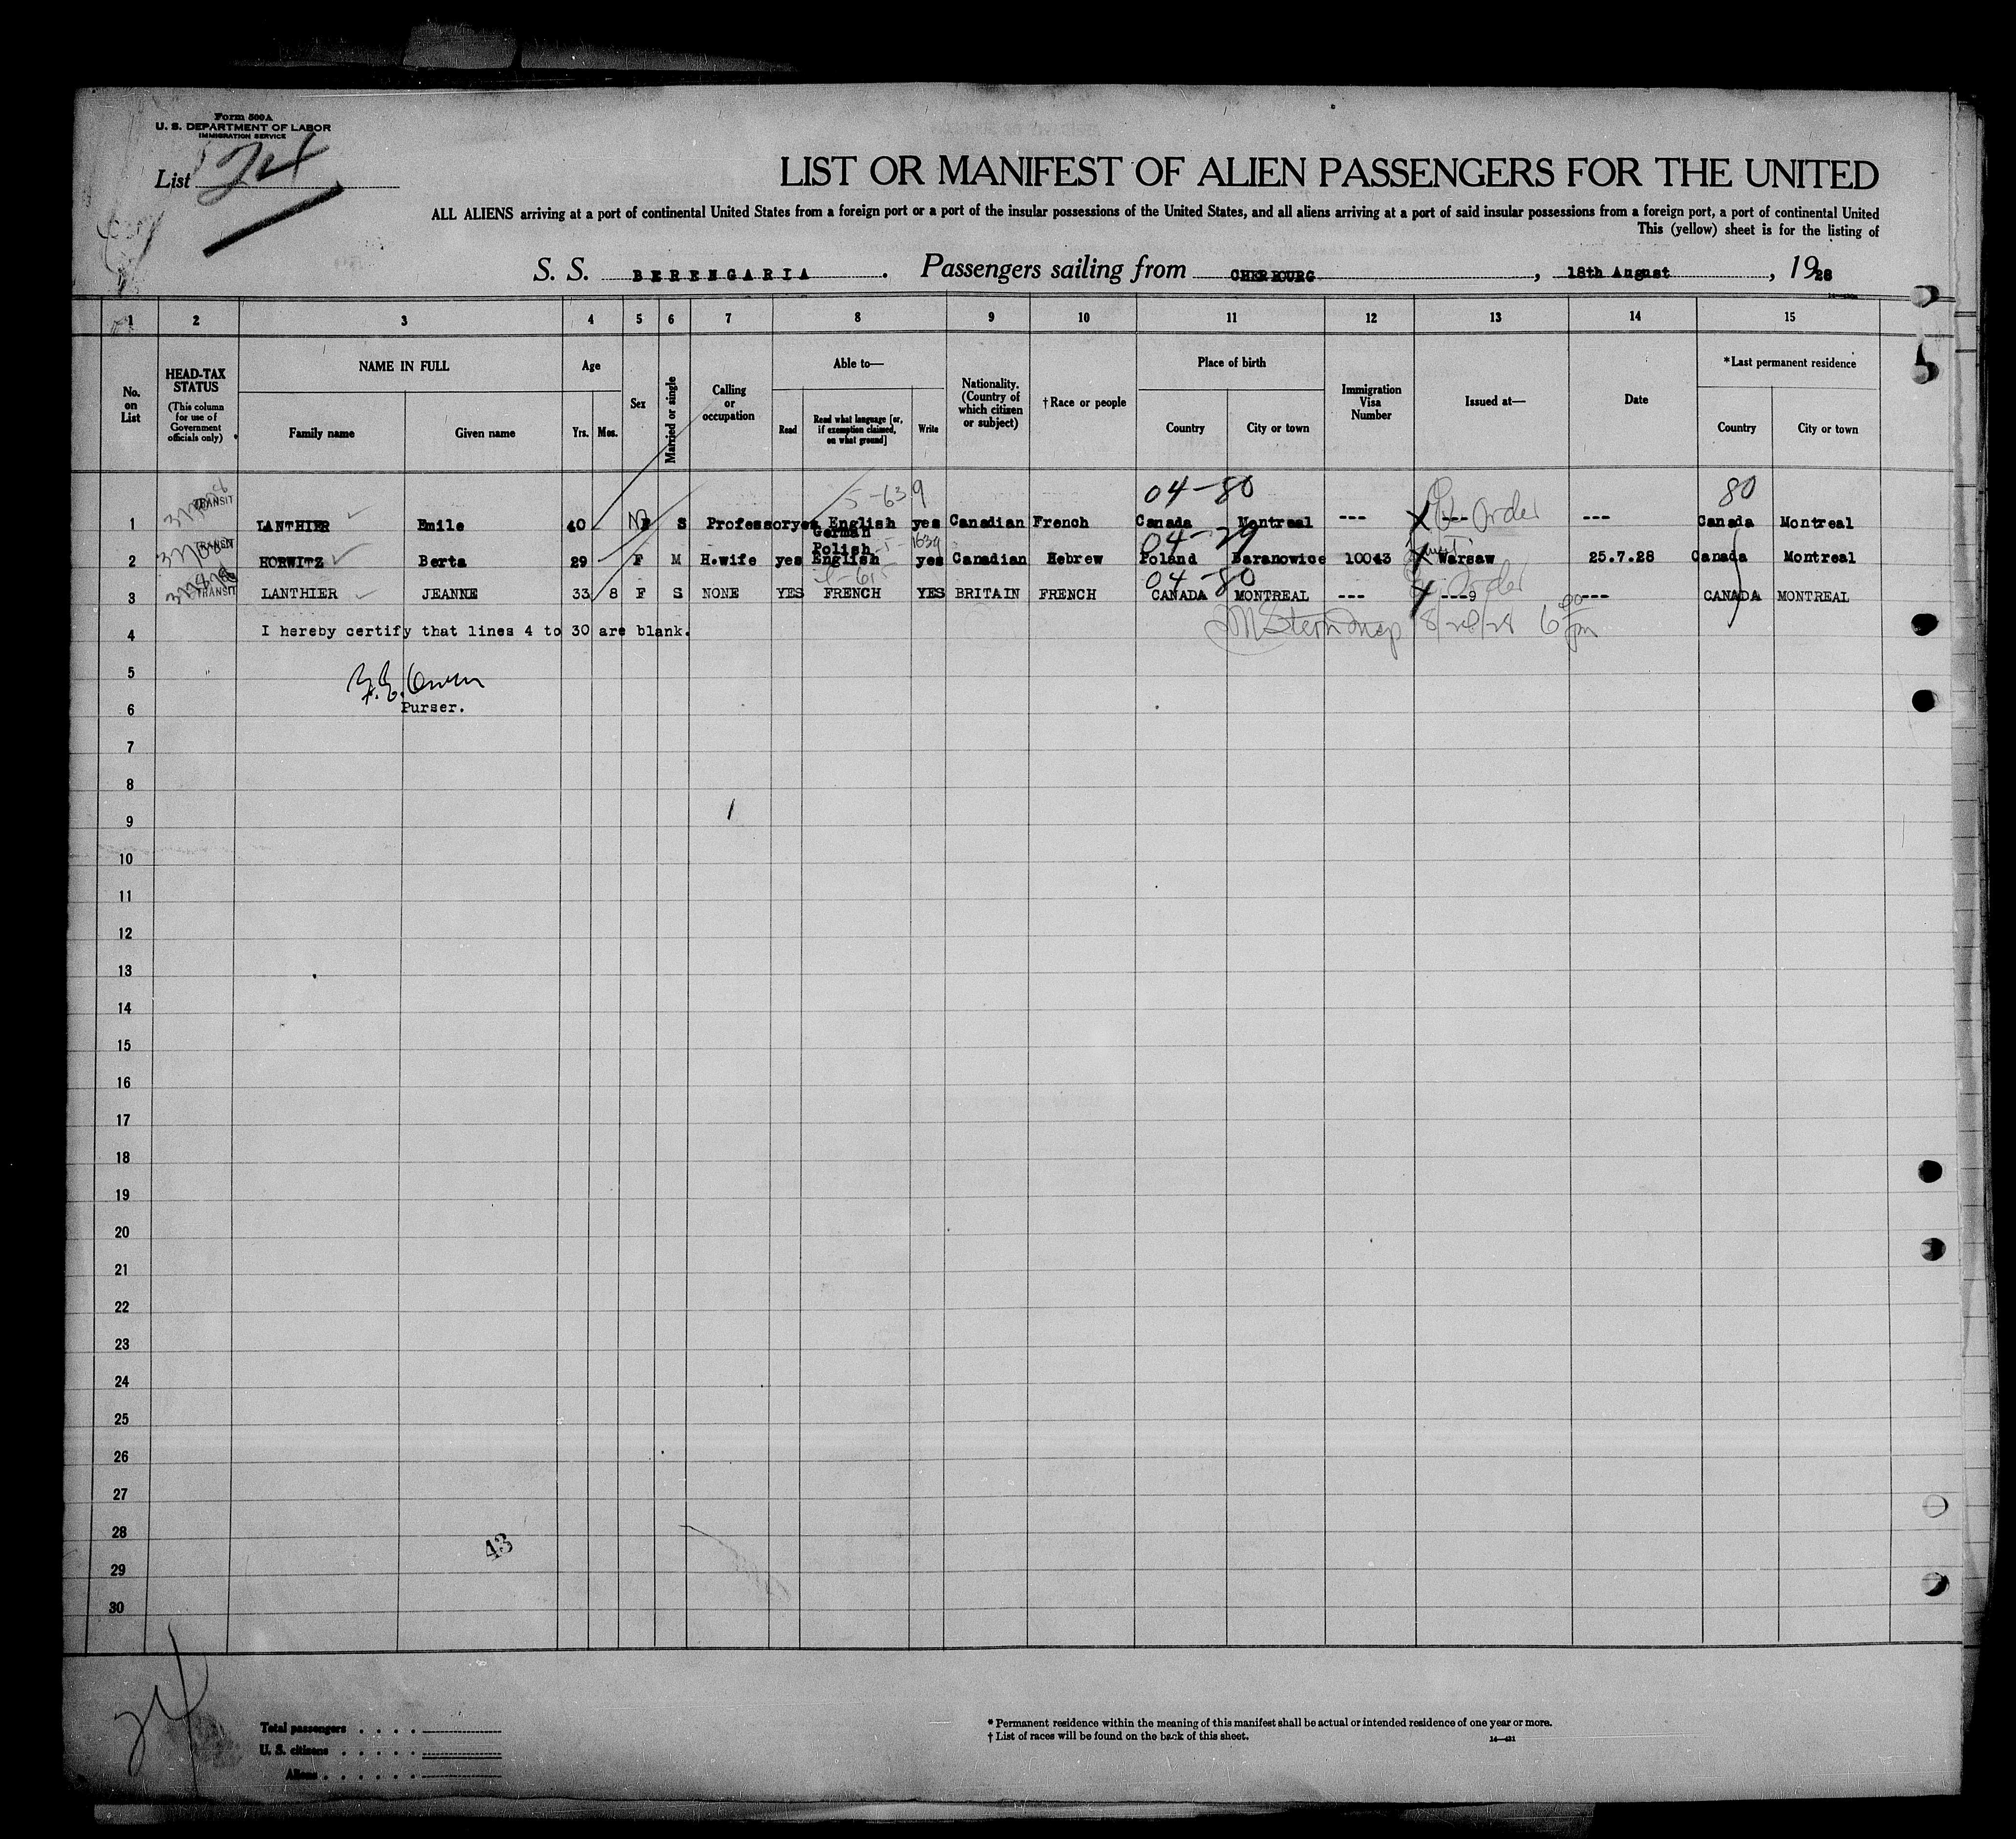 Form 500A
U. S. DEPARTMENT OF LABOR
IMMIGRATION SERVICE
List 24
LIST OR MANIFEST OF ALIEN PASSENGERS FOR THE UNITED
ALL ALIENS arriving at a port of continental United States from a foreign port or a port of the insular possessions of the United States, and all aliens arriving at a port of said insular possessions from a foreign port, a port of continental United
This (yellow) sheet is for the listing of
S. S. BERENGARIA. Passengers sailing from CHERBOURG, 18th August, 1928
1 2 3 4 5 6 7 8 9 10 11 12 13 14 15
No. on List
HEAD-TAX STATUS (This column for use of Government officials only)
NAME IN FULL
Family name Given name
Age
Yrs. Mos.
Sex
Married or single
Calling or occupation
Able to—
Read
Read what language [or, if exemption claimed, on what ground]
Write
Nationality. (Country of which citizen or subject)
†Race or people
Place of birth
Country City or town
Immigration Visa Number
Issued at—
Date
*Last permanent residence
Country City or town
5-639 04-80 80
1 TRANSIT LANTHIER Emile 40 S Professor yes English yes Canadian French Canada Montreal --- --- Order --- Canada Montreal
German
Polish 04-29
2 TRANSIT HORWITZ Berta 29 F M H.wife yes English yes Canadian Hebrew Poland Baranowice 10043 Warsaw 25.7.28 Canada Montreal
04-80
3 TRANSIT LANTHIER JEANNE 33 8 F S NONE YES FRENCH YES BRITAIN FRENCH CANADA MONTREAL --- --- Order --- CANADA MONTREAL
4 I hereby certify that lines 4 to 30 are blank. 8/28/28 6 pm
5
6 Purser.
7
8
9
10
11
12
13
14
15
16
17
18
19
20
21
22
23
24
25
26
27
28 43
29
30
24
Total passengers . . . .
U. S. citizens . . . . .
Aliens . . . . . .
* Permanent residence within the meaning of this manifest shall be actual or intended residence of one year or more.
† List of races will be found on the back of this sheet.
14—421